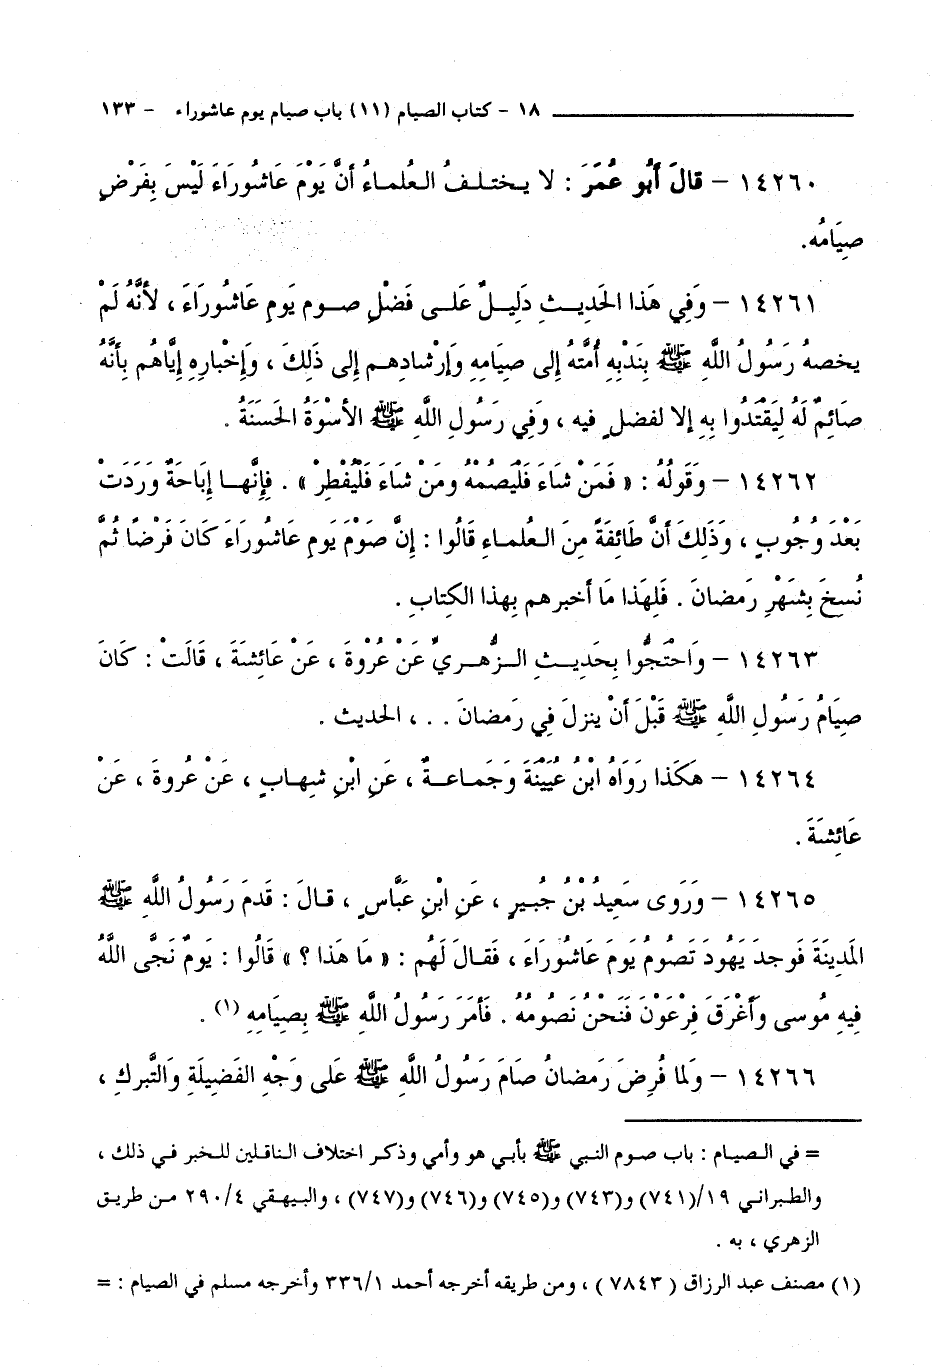 ١٨ - كتاب الصيام (١١) باب صيام يوم عاشوراء - ١٣٣
١٤٢٦٠ - قَالَ أَبُو عُمَرَ : لا يختلفُ العُلماءُ أنَّ يَوْمَ عَاشُورَاءَ لَيْسَ بِفَرْضٍ
صِيَامُه.
١٤٢٦١ - وَفِي هَذا الحَديثِ دَلِيلٌ عَلى فَضْلِ صومِ يَومِ عَاشُورَاءَ ، لأنَّهُ لَمْ
يخصهُ رَسُولُ اللَّهِ ﷺ بِنَدْبِهِ أُمَّتَهُ إلى صِيَامِهِ وَإرْشادِهم إلى ذَلِكَ ، وَإخْبارِهِ إيَّاهُم بِأنَّهُ
صَائِمٌ لَهُ لِيَقْتَدُوا بِهِ إلا لفضلٍ فيه ، وَفِي رَسُولِ اللَّهِ ﷺ الأُسْوَةُ الحَسَنَةُ .
١٤٢٦٢ - وَقَولُهُ : « فَمَنْ شَاءَ فَلْيَصُمْهُ ومَنْ شَاءَ فَلْيُفْطِرْ » . فإنَّها إبَاحَةٌ وَرَدَتْ
بَعْدَ وُجُوبٍ ، وَذَلِكَ أنَّ طَائِفَةً مِنَ العُلماءِ قَالُوا : إنَّ صَوْمَ يَومِ عَاشُورَاءَ كَانَ فَرْضًا ثُمَّ
نُسِخَ بِشَهْرِ رَمضانَ . فَلِهَذا مَا أخبرهم بِهذا الكِتابِ .
١٤٢٦٣ - وَاحْتَجُّوا بِحَدِيثِ الزُّهريِّ عَنْ عُرْوةَ ، عَنْ عَائِشَةَ ، قَالَتْ : كَانَ
صِيَامُ رَسُولِ اللَّهِ ﷺ قَبْلَ أنْ ينزلَ فِي رَمضانَ . . ، الحديث .
١٤٢٦٤ - هكَذا رَوَاهُ ابْنُ عُيَيْنَةَ وَجَماعةٌ ، عَنِ ابْنِ شِهابٍ ، عَنْ عُروةَ ، عَنْ
عَائِشَةَ .
١٤٢٦٥ - وَرَوَى سَعِيدُ بْنُ جُبيرٍ ، عَنِ ابْنِ عَبَّاسٍ ، قالَ : قَدمَ رَسُولُ اللَّهِ ﷺ
المَدِينَةَ فَوجدَ يَهُودَ تَصُومُ يَومَ عَاشُورَاءَ ، فَقالَ لَهُم : « مَا هَذا ؟ » قَالُوا : يَومٌ نَجَّى اللَّهُ
فِيهِ مُوسى وَأَغْرَقَ فِرْعَوْنَ فَنَحْنُ نَصُومُهُ . فَأَمَرَ رَسُولُ اللَّهِ ﷺ بِصِيَامِهِ (١) .
١٤٢٦٦ - وَلَما فُرِضَ رَمضانُ صَامَ رَسُولُ اللَّهِ ﷺ عَلى وَجْهِ الفَضِيلَةِ وَالتَّبركِ ،
= في الصيام : باب صوم النبي ﷺ بأبي هو وأمي وذكر اختلاف الناقلين للخبر في ذلك ،
والطبراني ١٩/(٧٤١) و(٧٤٣) و(٧٤٥) و(٧٤٦) و(٧٤٧) ، والبيهقي ٢٩٠/٤ من طريق
الزهري ، به .
(١) مصنف عبد الرزاق ( ٧٨٤٣ ) ، ومن طريقه أخرجه أحمد ٣٣٦/١ وأخرجه مسلم في الصيام : =